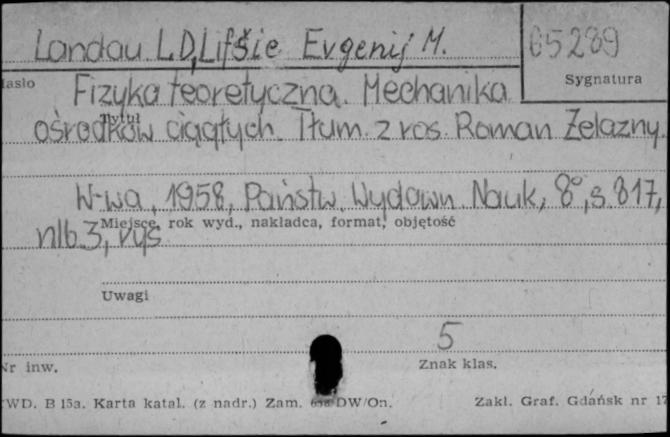 Landau L.D, Lifšic Evgenij M. 65289
Hasło Sygnatura
Fizyka teoretyczna. Mechanika
Tytuł
ośrodków ciągłych. Tłum. z ros. Roman Żelazny.
W-wa, 1958, Państw. Wydawn. Nauk, 8°, s. 817,
Miejsce, rok wyd., nakładca, format, objętość
nlb 3, rys
Uwagi
5
Nr inw. Znak klas.
WD. B 15a. Karta katal. (z nadr.) Zam. DW/On. Zakł. Graf. Gdańsk nr 17